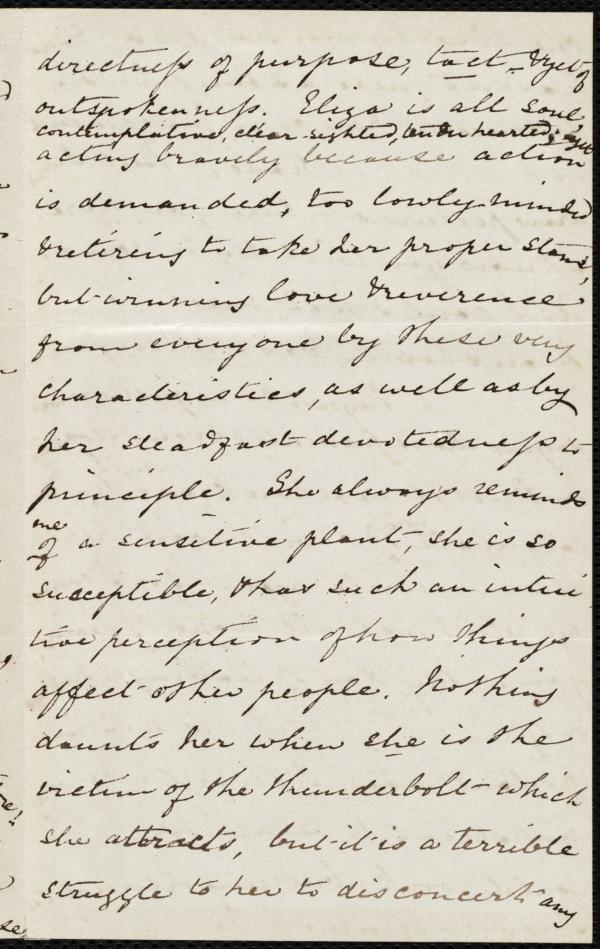 directness of purpose, tact, & yet of
outspokenness. Eliza is all soul,
contemplative, clear-sighted, tender hearted, & yet
acting bravely because action
is demanded, too lowly-minded
& retiring to take her proper stand,
but winning love & reverence
from every one by these very
characteristics, as well as by
her steadfast devotedness to
principle. She always reminds
me
of a sensitive plant, she is so
susceptible, & has such an intui
tive perception of how things
affect other people. Nothing
daunts her when she is the
victim of the thunderbolt which
she attracts, but it is a terrible
struggle to her to disconcert any